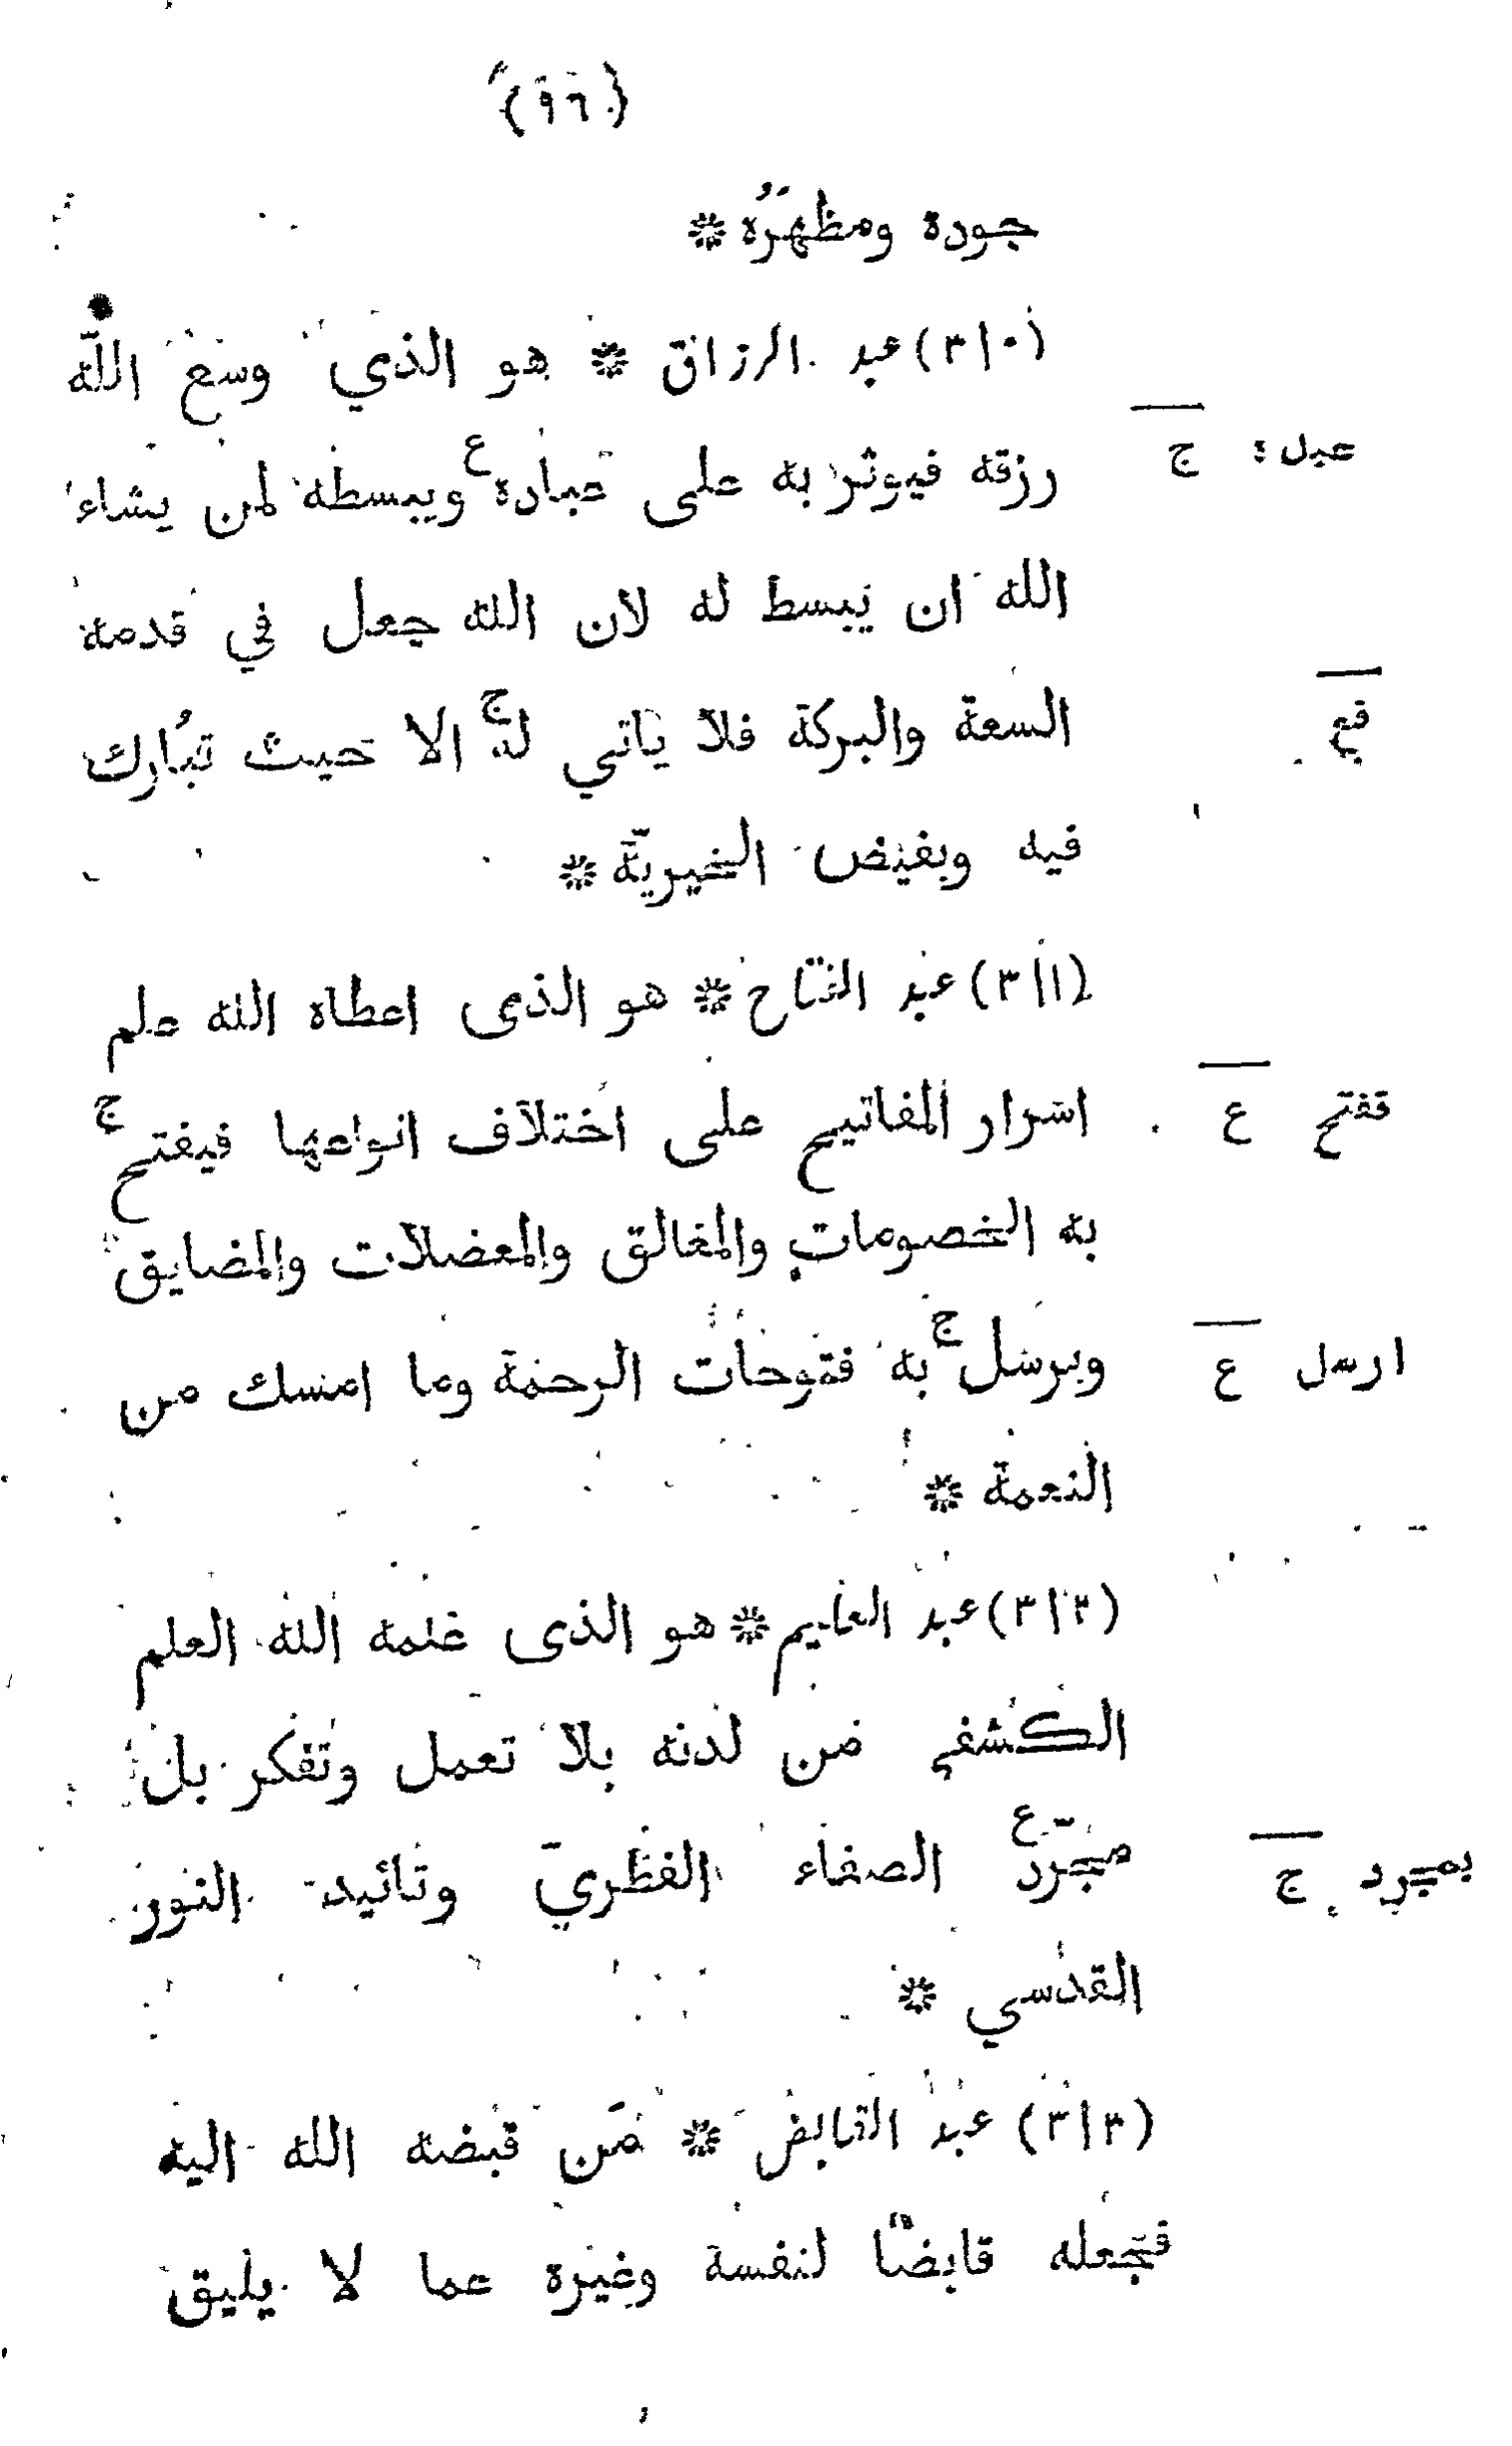 (٩٦)
جوده ومظهره *
(٣١٠) عبد الرزاق * هو الذي وسع الله
رزقه فيوثر به على عباده ع ويبسطه لمن يشاء
عبده ج
الله ان يبسط له لان الله جعل في قدمه
السعة والبركة فلا ياتي له ج الا حيث تبارك
فيه وبفيض الخيرية *
(٣١١) عبد الفتاح * هو الذى اعطاه الله علم
اسرار المفاتيح على اختلاف انواعها فيفتح ج
ففتح ع
به الخصومات والمغالق والمعضلات والمضايق
ويرسل ج به فتوحات الرحمة وما امسك من
ارسل ع
النعمة *
(٣١٢) عبد العليم * هو الذى علمه الله العلم
الكشفي من لدنه بلا تعمل وتفكر بل
مجرّد ع الصفاء الفطريّ وتائيد النور
بمجرد ج
القدسي *
(٣١٣) عبد القابض * من قبضه الله اليه
فجعله قابضًا لنفسه وغيره عما لا يليق